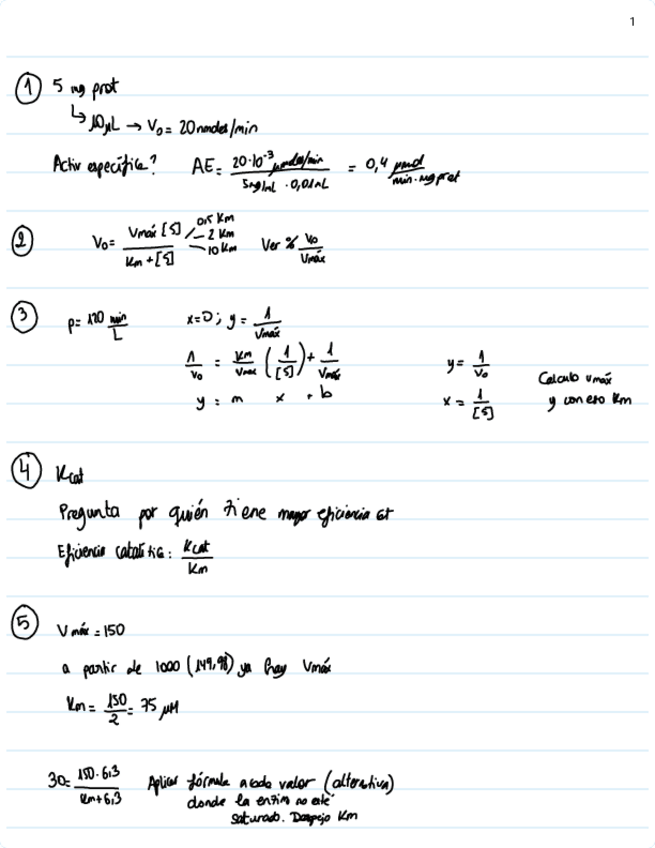 1
① 5 mg prot
↳ 10 µL → V₀ = 20 nmoles/min
Activ específica? AE = 20·10⁻³ µmoles/min / 5 mg/mL · 0,01 mL = 0,4 µmol / min·mg prot
② V₀ = Vmáx [S] / Km + [S] 0,5 Km 2 Km 10 Km Ver % V₀ / Vmáx
③ p = 120 min / L x=0; y = 1 / Vmáx
1 / V₀ = Km / Vmax (1 / [S]) + 1 / Vmáx y = 1 / V₀
y = m x + b x = 1 / [S] Calculo Vmáx y con eso Km
④ Kcat
Pregunta por quién tiene mayor eficiencia cat
Eficiencia catalítica: Kcat / Km
⑤ Vmáx = 150
a partir de 1000 (149,98) ya hay Vmáx
Km = 150 / 2 = 75 µM
30 = 150·6,3 / Km+6,3 Aplicar fórmula a cada valor (alternativa)
donde la enzim no esté
saturado. Despejo Km